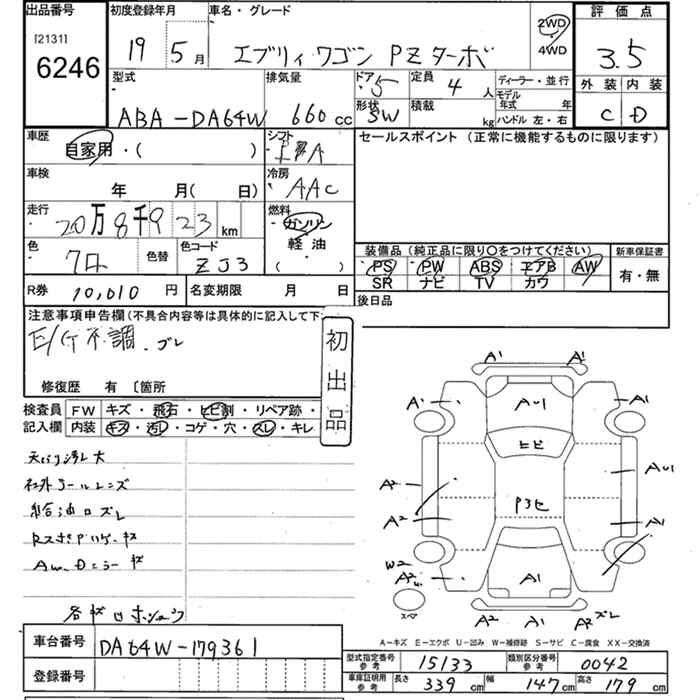 出品番号 初度登録年月 車名・グレード 評価点
[2131] 19 5月 エブリィワゴン PZターボ 2WD 3.5
6246 4WD
型式 排気量 ドア 5 定員 4人 ディーラー・並行 外装 内装
ABA-DA64W 660cc 形状 SW 積載 kg モデル年式 年 C D
ハンドル 左・右
車歴 シフト セールスポイント (正常に機能するものに限ります)
自家用・( )
車検 冷房
年 月( 日) AAC
走行 燃料
20万8千923km ガソリン
軽油
( )
色 色替 色コード 装備品 (純正品に限り○をつけてください) 新車保証書
ZJ3 PS PW ABS エアB AW 有・無
SR ナビ TV カワ
R券 10,010円 名変期限 月 日 後日品
注意事項申告欄(不具合内容等は具体的に記入して下
E/G不調
初出品
修復歴 有 〔箇所
検査員 FW キズ・飛石・ヒビ割・リペア跡・
記入欄 内装 キズ・汚レ・コゲ・穴・スレ・キレ
天張り汚レ大
社外テールレンズ
給油口ズレ
A1 A1
A1 AU1 A1
ヒビ
A2 AU1
P3セ
A2 A1
W2
A2 A1
スペア
A2 A1 A2 ズレ
A-キズ E-エクボ U-凹み W-補修跡 S-サビ C-腐食 XX-交換済
車台番号 DA64W-179361
型式指定番号 参考 15133 類別区分番号 参考 0042
登録番号 車庫証明用 参考 長さ 339cm 幅 147cm 高さ 179cm